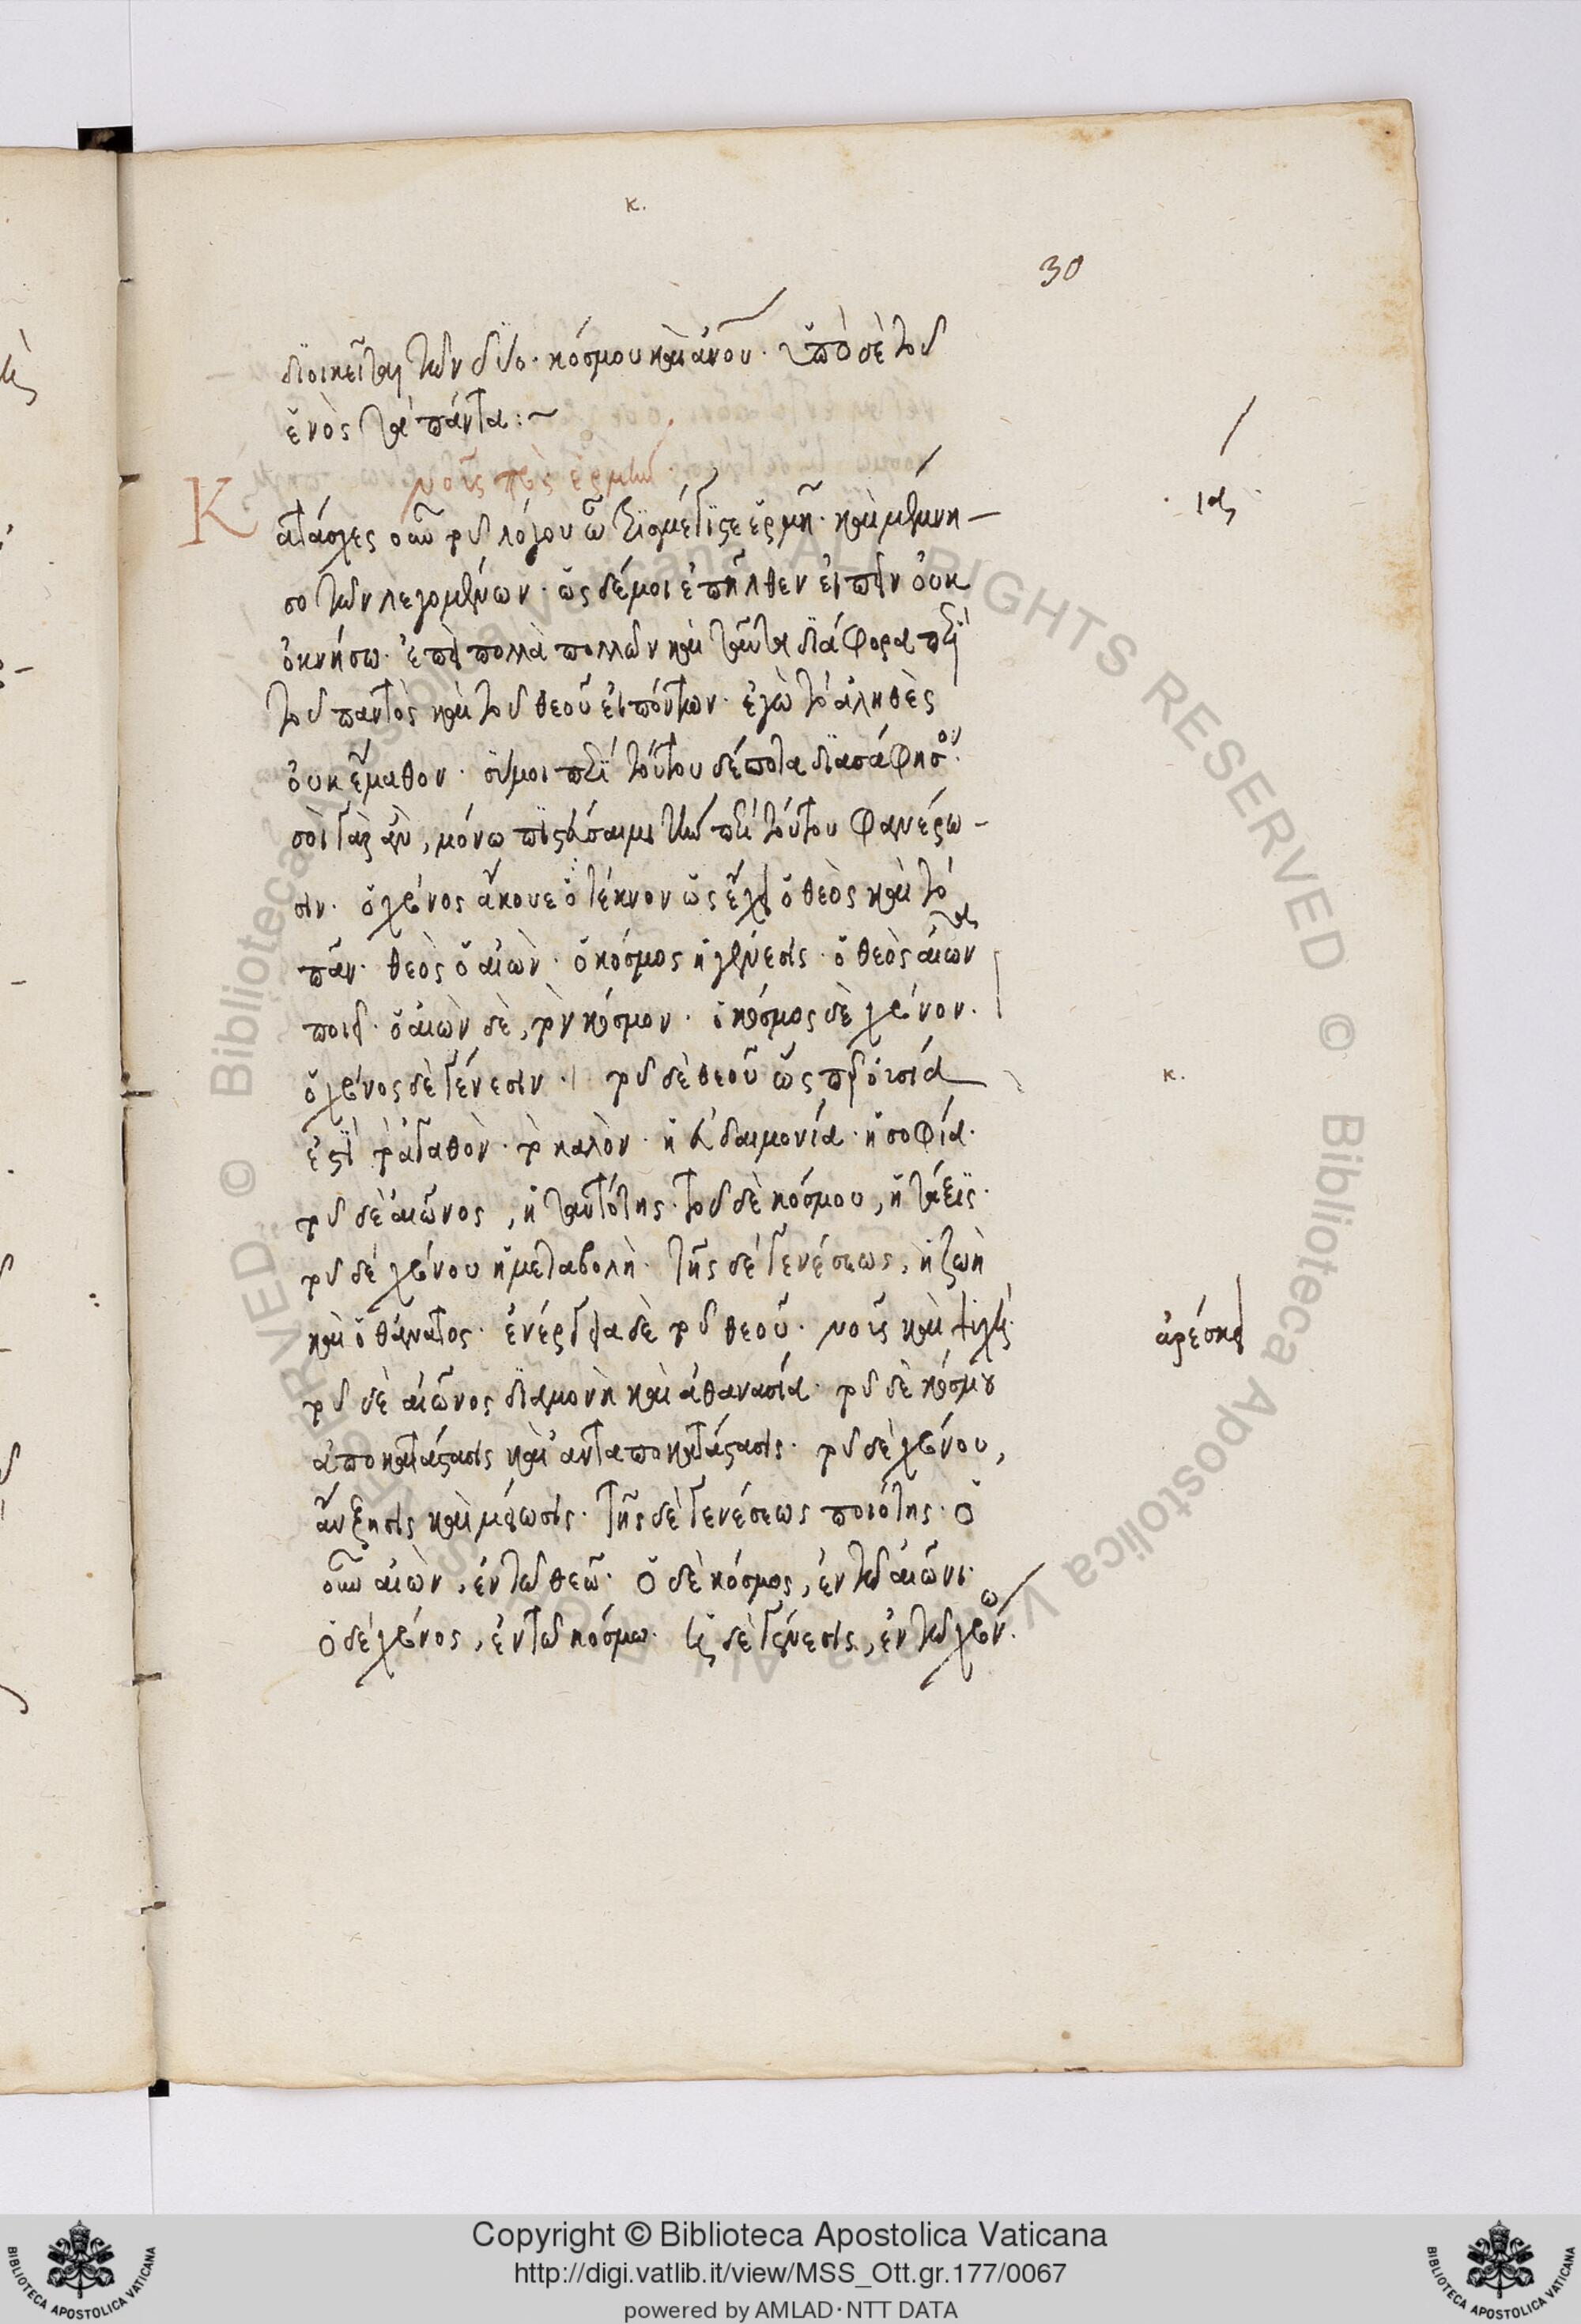 κ.
30
διοικεῖται τῶν δύο· κόσμου καὶ ἀνου· ὑπὸ δὲ τοῦ
ἑνὸς τὰ πάντα :~
νοῦς πρὸς ἑρμῆν
ια
Κατάσχες οὖν τοῦ λόγου ὦ τρισμέγιστε ἑρμῆ· καὶ μέμνη-
σο τῶν λεγομένων· ὡς δέ μοι ἐπῆλθεν εἰπεῖν οὐκ
ὀκνήσω· ἐπεὶ πολλὰ πολλῶν καὶ ταῦτα διάφορα περὶ
τοῦ παντὸς καὶ τοῦ θεοῦ εἰπόντων· ἐγὼ τὸ ἀληθὲς
οὐκ ἔμαθον· σύ μοι περὶ τούτου δέσποτα διασάφησον·
σοὶ γὰρ ἂν, μόνω πιστεύσαιμι τὴν περὶ τούτου φανέρω-
σιν· ὁ χρόνος ἄκουε ὁ τέκνον ὡς ἔχει ὁ θεὸς καὶ τὸ
πᾶν· θεὸς ὁ αἰὼν· ὁ κόσμος ἡ γένεσις· ὁ θεὸς αἰῶνα
ποιεῖ· ὁ αἰὼν δὲ, τὸν κόσμον· ὁ κόσμος δὲ χρόνον·
ὁ χρόνος δὲ γένεσιν· τοῦ δὲ θεοῦ ὥσπερ οὐσία
κ.
ἐστὶ τὸ ἀγαθὸν· τὸ καλὸν· ἡ εὐδαιμονία· ἡ σοφία·
τοῦ δὲ αἰῶνος, ἡ ταυτότης· τοῦ δὲ κόσμου, ἡ τάξις·
τοῦ δὲ χρόνου ἡ μεταβολὴ· τῆς δὲ γενέσεως, ἡ ζωὴ
καὶ ὁ θάνατος· ἐνέργεια δὲ τοῦ θεοῦ· νοῦς καὶ ψυχή·
ἀρέσκει
τοῦ δὲ αἰῶνος διαμονὴ καὶ ἀθανασία· τοῦ δὲ κόσμου
ἀποκατάστασις καὶ ἀνταποκατάστασις· τοῦ δὲ χρόνου,
αὔξησις καὶ μείωσις· τῆς δὲ γενέσεως ποιότης· ὁ
οὖν αἰὼν, ἐν τῶ θεῶ· ὁ δὲ κόσμος, ἐν τῶ αἰῶνι·
ὁ δὲ χρόνος, ἐν τῶ κόσμω· ἡ δὲ γένεσις, ἐν τῶ χρόνω.
Copyright © Biblioteca Apostolica Vaticana
http://digi.vatlib.it/view/MSS_Ott.gr.177/0067
powered by AMLAD·NTT DATA